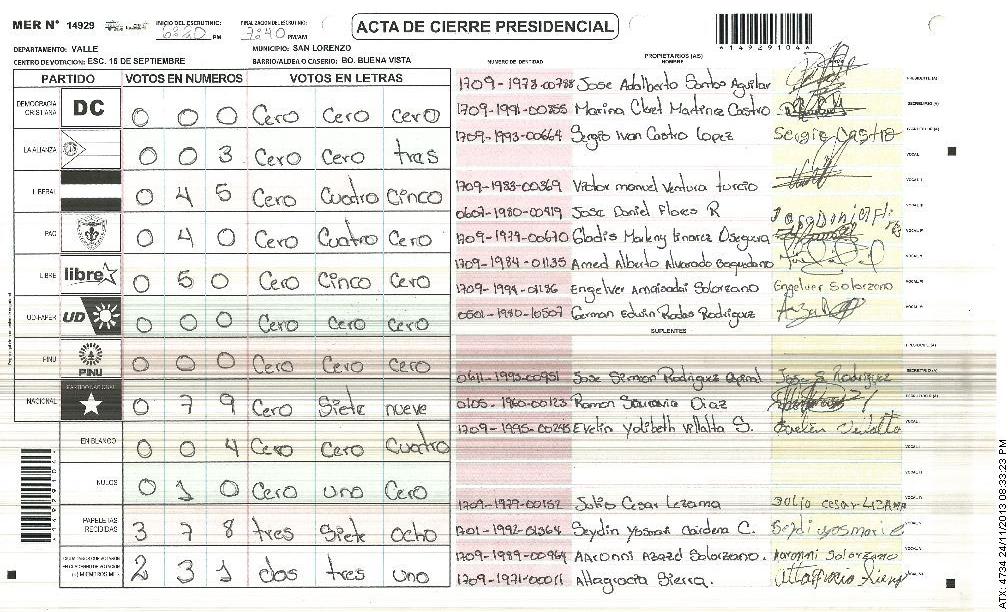 MER N° 14929
INICIO DEL ESCRUTINIO: 6:20 PM
FINALIZACION DEL ESCRUTINIO: 7:40 PM/AM
ACTA DE CIERRE PRESIDENCIAL
41492910 4
DEPARTAMENTO: VALLE
MUNICIPIO: SAN LORENZO
CENTRO DE VOTACION: ESC. 15 DE SEPTIEMBRE
BARRIO/ALDEA O CASERIO: BO. BUENA VISTA
PARTIDO VOTOS EN NUMEROS VOTOS EN LETRAS
DEMOCRACIA CRISTIANA DC 0 0 0 Cero Cero Cero
LA ALIANZA 0 0 3 Cero Cero tres
LIBERAL 0 4 5 Cero Cuatro Cinco
PAC 0 4 0 Cero Cuatro Cero
LIBRE libre 0 5 0 Cero Cinco Cero
UD-FAPER UD 0 0 0 Cero Cero Cero
PINU PINU 0 0 0 Cero Cero Cero
NACIONAL PARTIDO NACIONAL 0 7 9 Cero Siete nueve
EN BLANCO 0 0 4 Cero Cero Cuatro
NULOS 0 1 0 Cero uno Cero
PAPELETAS RECIBIDAS 3 7 8 tres Siete ocho
2 3 1 dos tres uno
NUMERO DE IDENTIDAD
PROPIETARIOS (AS)
NOMBRE
1709-1973-00788 Jose Adalberto Santos Aguilar PRESIDENTE (A)
1709-1991-00355 Marina Clbel Martinez Castro SECRETARIO (A)
1709-1993-00664 Sergio Ivan Castro Lopez Sergio Castro
VOCAL
1709-1983-00369 Victor manuel Ventura turcio
0607-1980-00919 Jose Daniel Flores R
1709-1979-00670 Gladis Marleny
1709-1984-01135 Amed Alberto Alvarado
1709-1994-01186 Engelver Solorzano Engelver Solorzano
0501-1980-10507 German Edwin Rodas Rodriguez
SUPLENTES
PRESIDENTE (A)
0611-1993-00951 Jose Simeon Rodriguez Jose S Rodriguez SECRETARIO (A)
0105-1960-00123 Ramon Diaz
1709-1995-00245 Evelin Yolibeth Villalta S.
1709-1979-00152 Julio Cesar Lezama Julio cesar
1701-1992-01364 Seydin Yosmari Cardena C.
1709-1989-00964 Aaronni Solorzano. Aaronni Solorzano
1709-1971-00011 Altagracia Sierra.
ATX: 4734 24/11/2013 08:33:23 PM